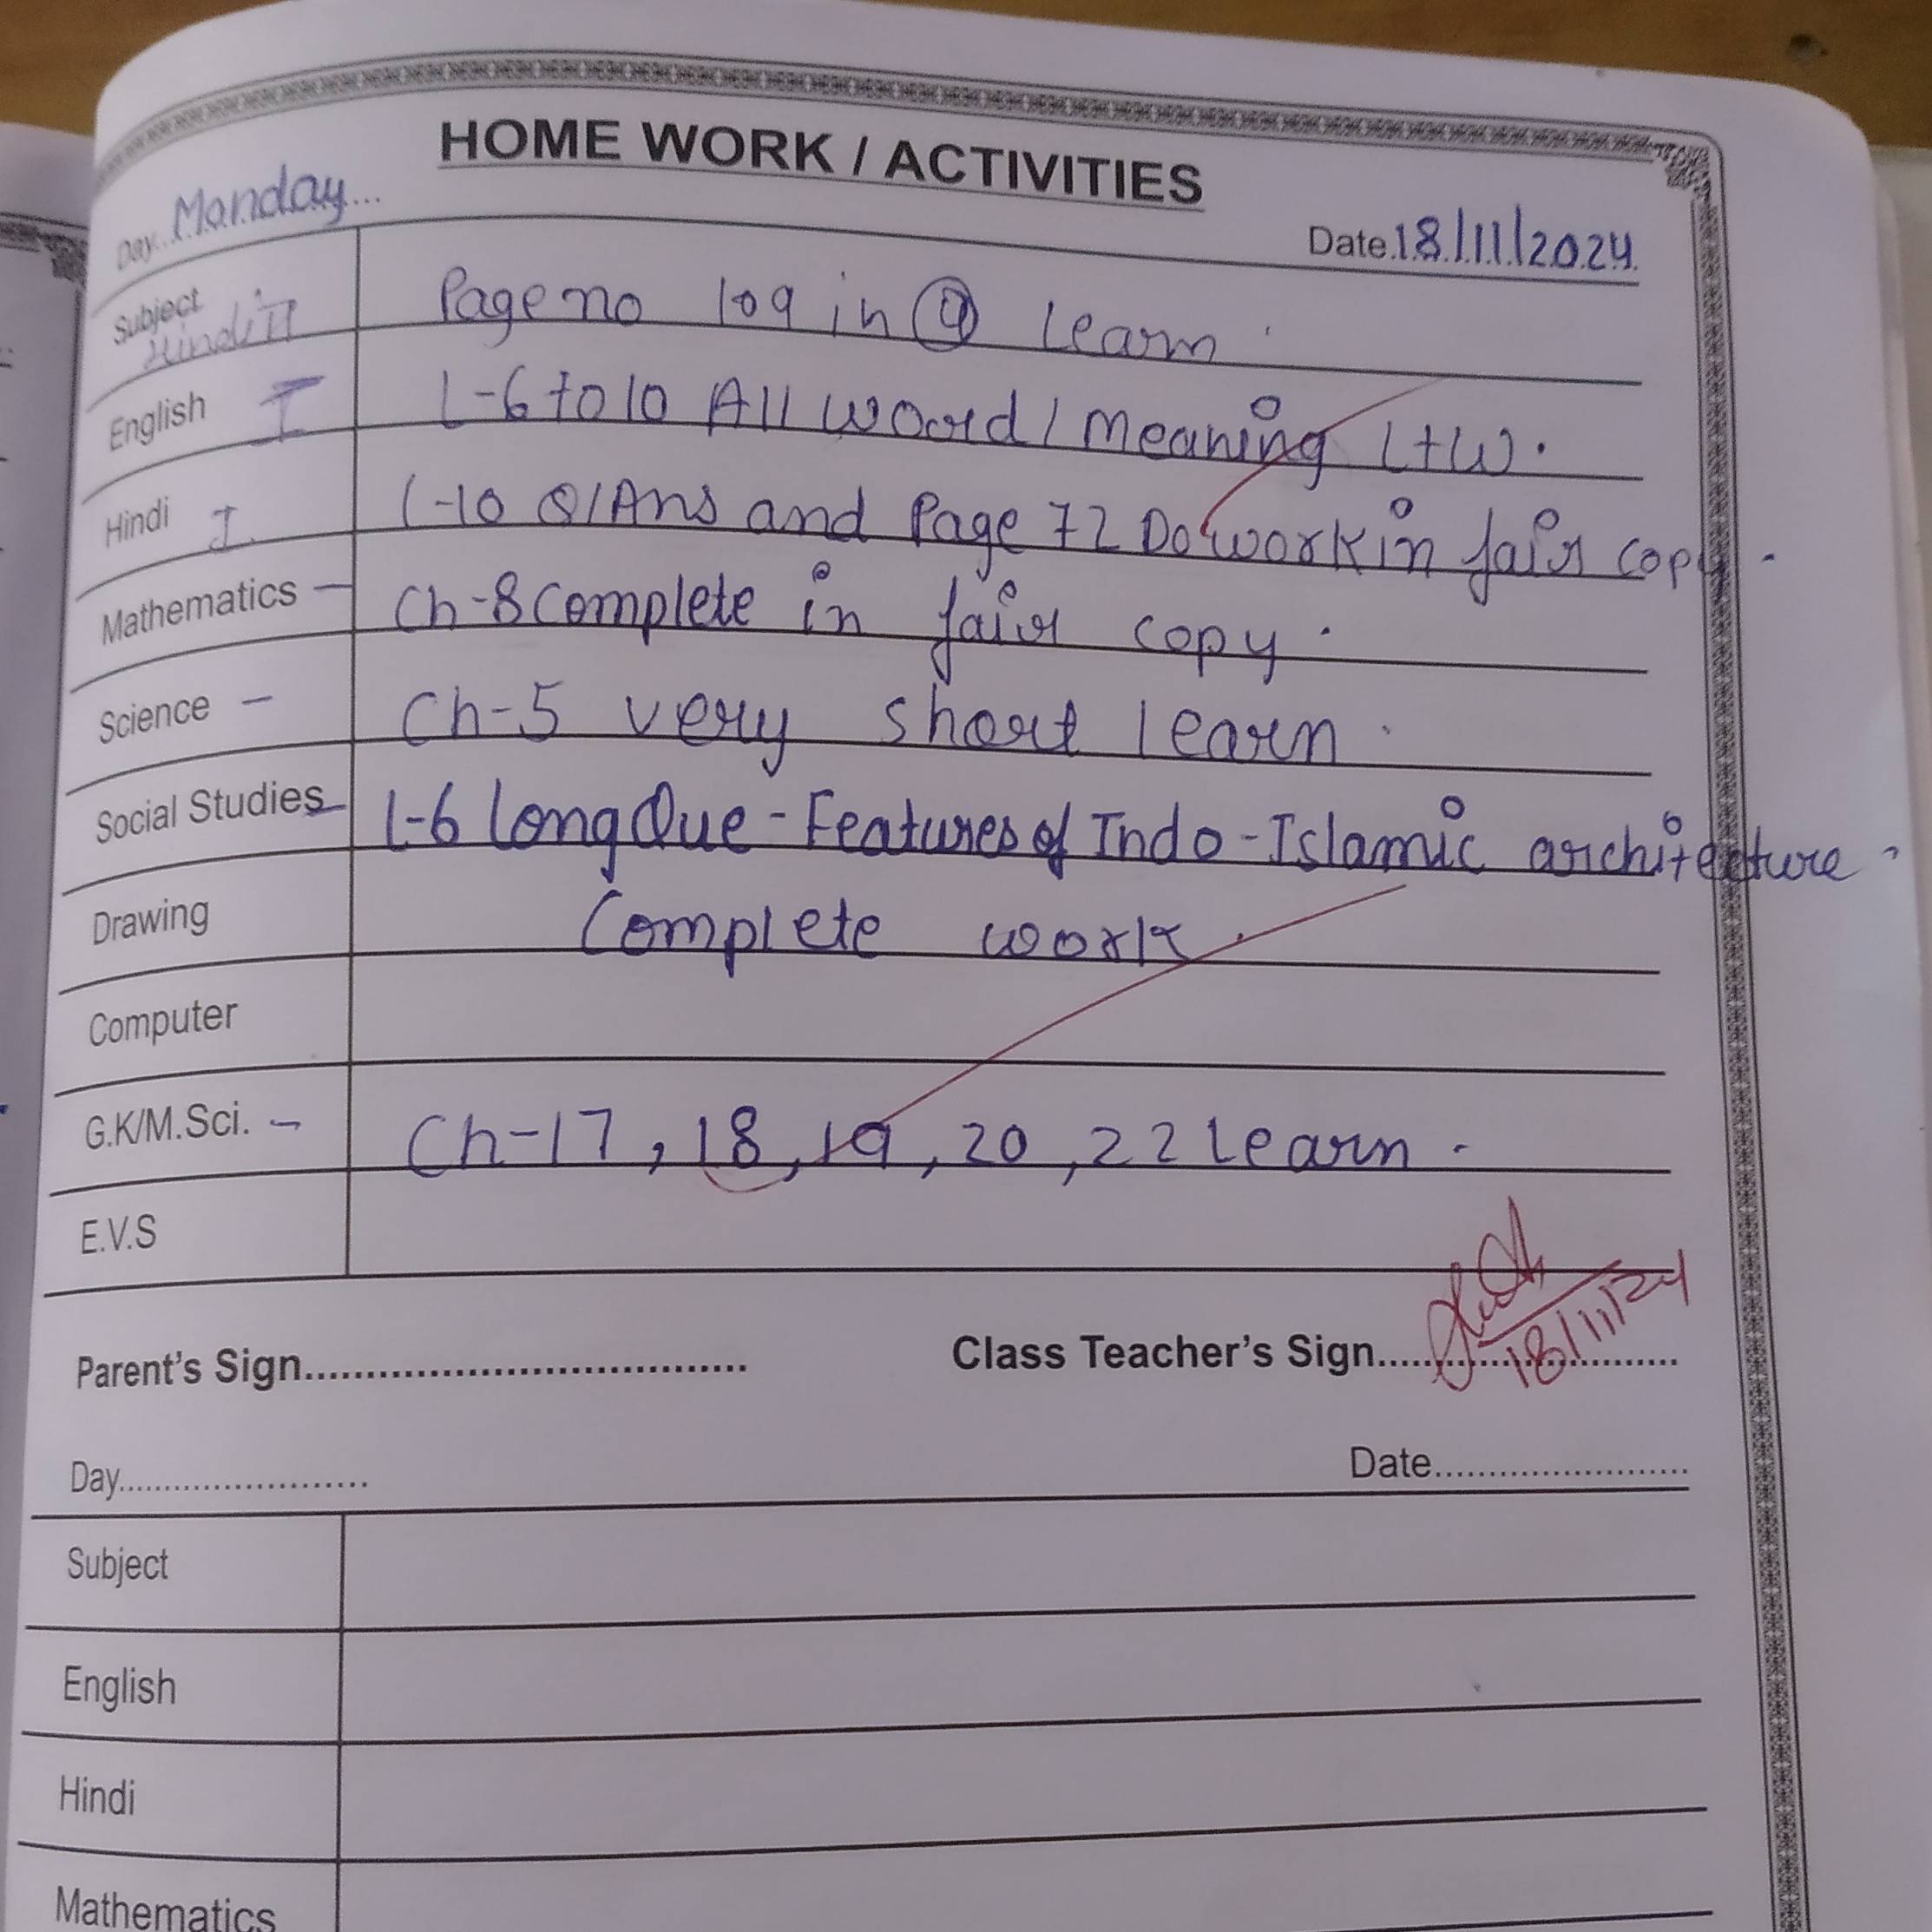 HOME WORK / ACTIVITIES
Day Monday Date 18/11/2024
Subject Hindi II Page no 109 in learn.
English I L-6 to 10 All Word/Meaning L+W.
Hindi I. L-10 Q/Ans and Page 72 Do work in fair copy.
Mathematics - Ch-8 Complete in fair copy.
Science - Ch-5 very short learn.
Social Studies - L-6 Long Que - Features of Indo-Islamic architecture.
Drawing Complete work.
Computer
G.K/M.Sci. - Ch-17, 18, 19, 20, 22 Learn.
E.V.S
Parent's Sign Class Teacher's Sign 18/11/24
Day Date
Subject
English
Hindi
Mathematics